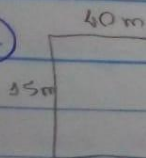 40 m
15m